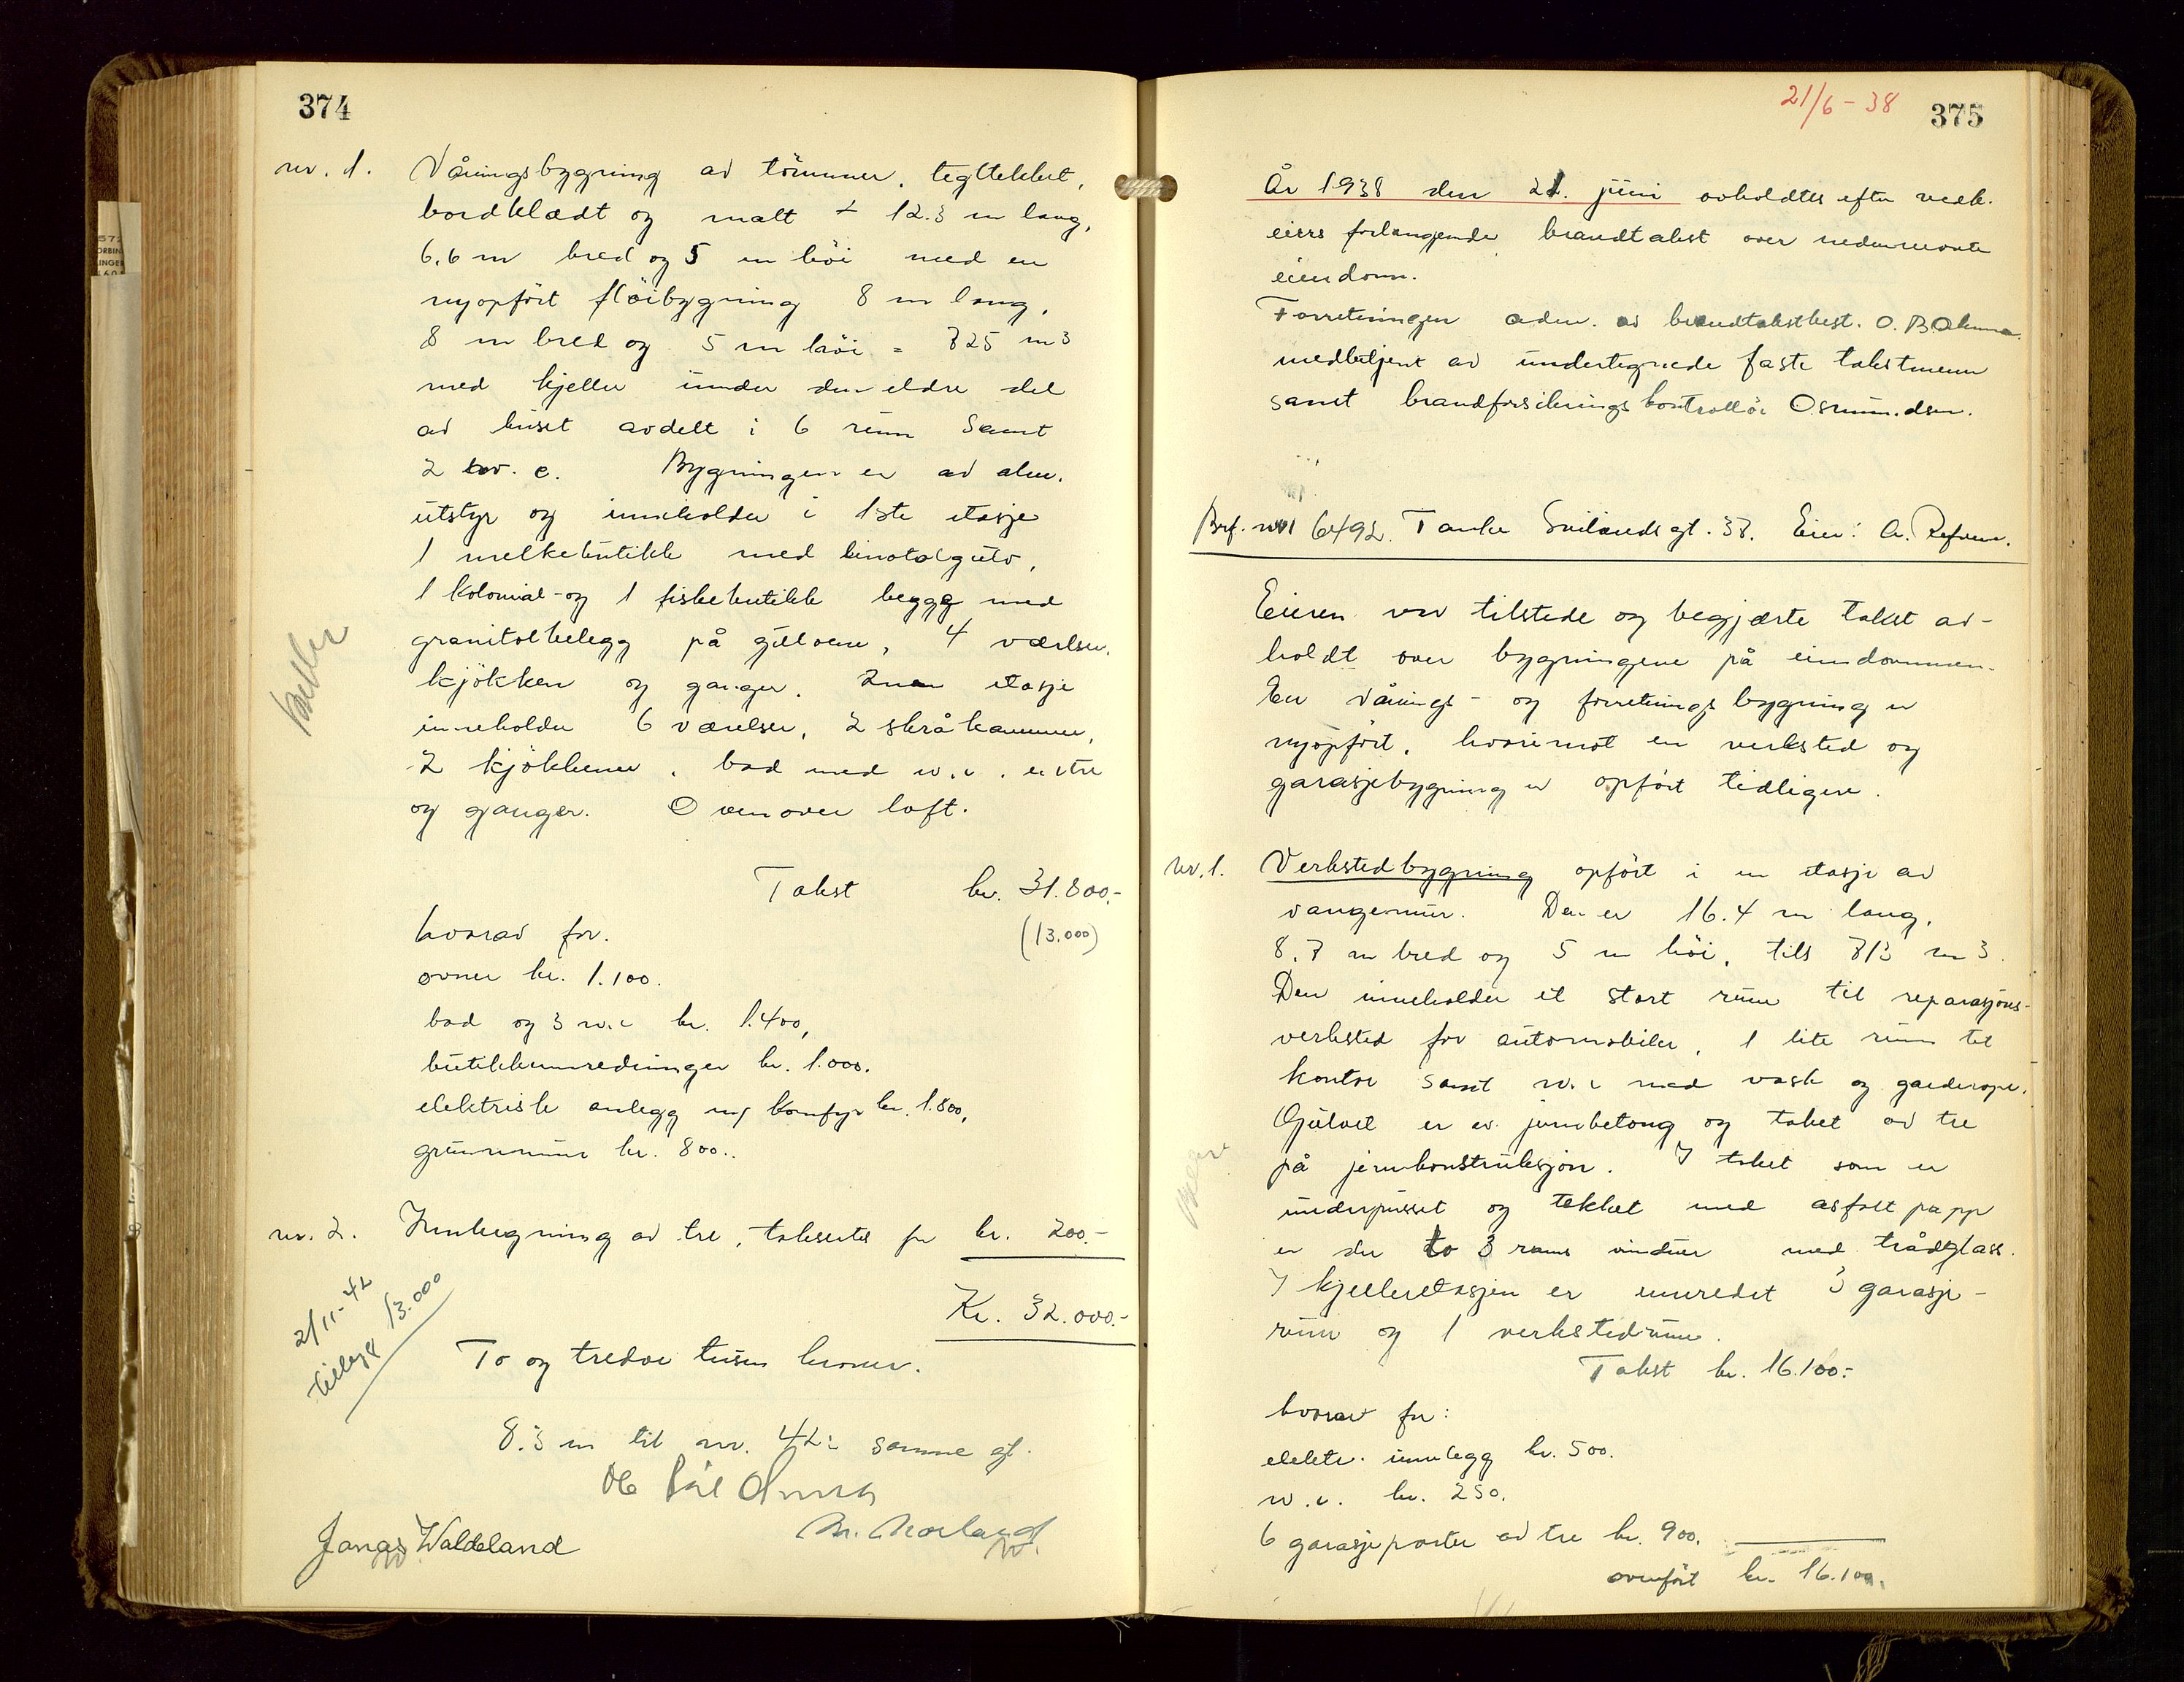 374
nr. 1. Våningsbygning av tömmer, tegltekket,
bordklædt og malt + 12.3 m lang,
6.6 m bred og 5 m höi med en
nyopfört flöibygning 8 m lang,
8 m bred og 5 m höi = 725 m3
med kjeller under den eldre del
av huset avdelt i 6 rum samt
2 w. c. Bygningen er av alm.
utstyr og inneholder i 1ste etasje
1 melkebutikk med linotolgulv,
1 kolonial- og 1 fiskebutikk begge med
granitolbelegg på gulvene, 4 værelser,
kjökken og ganger. 2nen etasje
inneholder 6 værelser, 2 skråkammer,
2 kjökkener, bad med w.c. entre
og ganger. Ovenover loft.
Takst kr. 31.800.-
hvorav for. (13.000)
ovner kr. 1.100.
bad og 3 w.c kr. 1.400,
butikkinnredninger kr. 1.000.
elektrisk anlegg m/ komfyr kr. 1.800,
grunnmur kr. 800..
nr. 2. bygning av tre, takseres for kr. 200.-
Kr. 32.000.-
2/11-42
tillegg 13.000
To og tredve tusen kroner.
8.3 m til nr. 42 samme gt.
Jonas Waldeland
375
21/6-38
År 1938 den 21. juni avholdtes efter vedk.
eiers forlangende brandtakst over nedennevnte
eiendom.
Forretningen adm. av brandtakstbest. O. B.
medbetjent av undertegnede faste takstmenn
samt brandforsikringskontrollör Osmundsen.
Brf. nr 6492. Tanke Svilandsgt. 38. Eier: A. Refvem.
Eieren var tilstede og begjærte takst av-
holdt over bygningene på eiendommen.
En vånings- og forretningsbygning er
nyopfört, hvorimot en verksted og
garasjebygning er opfört tidligere.
nr. 1. Verkstedbygning opfört i en etasje av
vangemur. Den er 16.4 m lang,
8.7 m bred og 5 m höi, tils 713 m3.
Den inneholder et stort rum til reparasjons-
verksted for automobiler, 1 lite rum til
kontor samt w.c med vask og garderope.
Gulvet er av jernbetong og taket av tre
på jernkonstruksjon. I taket som er
underpusset og tekket med asfalt papp
er der to 3 rams vinduer med trådglass.
I kjelleretasjen er innredet 3 garasje-
rum og 1 verkstedrum.
Takst kr. 16.100.-
hvorav for:
elektr. innlegg kr. 500.
w.c. kr. 250.
6 garasjeporter av tre kr. 900.
overfört kr. 16.100.